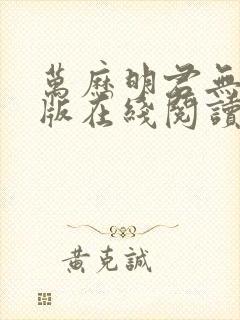 萬歷明君無
版在綫閱讀
黃克誠